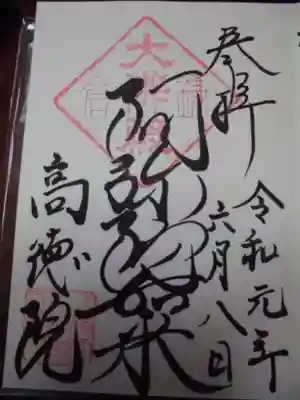 奉拝
令和元年
六月八日
阿弥陀如来
高徳院